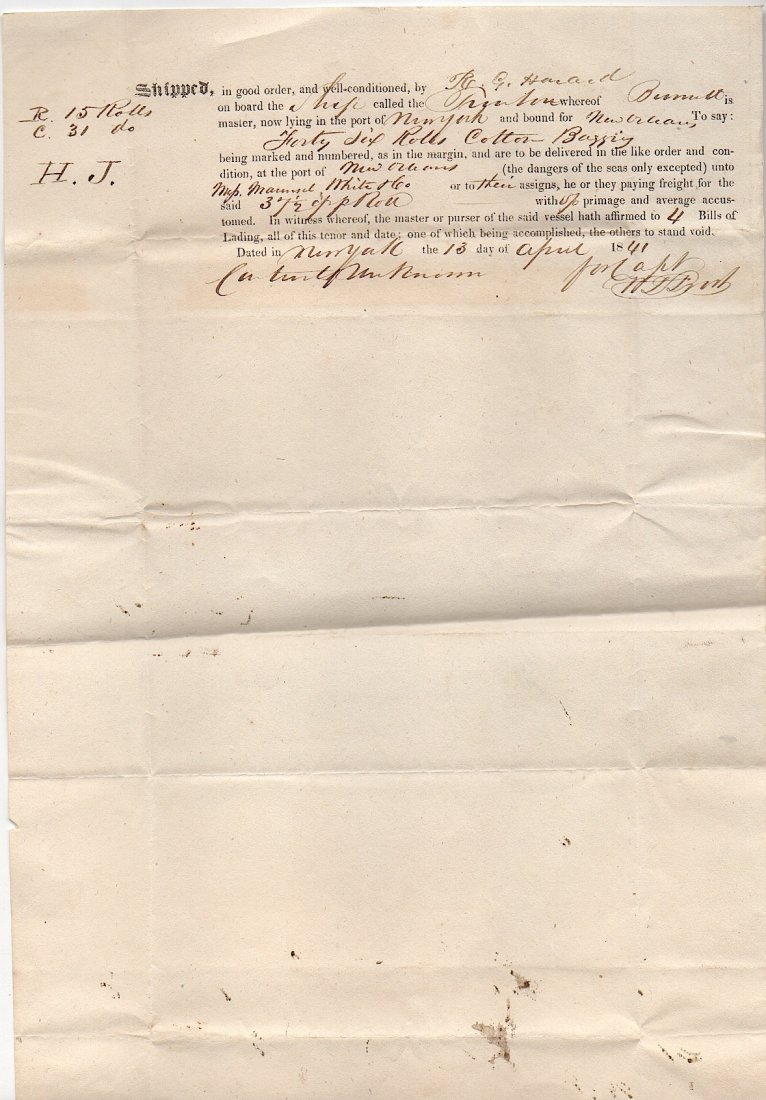 Shipped, in good order, and well-conditioned, by R. G. Hazard
on board the Ship called the Trenton whereof Bennett is
master, now lying in the port of New York and bound for New Orleans To say:
Forty Six Rolls Cotton Bagging
being marked and numbered, as in the margin, and are to be delivered in the like order and con-
dition, at the port of New Orleans (the dangers of the seas only excepted) unto
Mess. Maunsel White & Co or to their assigns, he or they paying freight for the
said 37½ p Roll with 5 primage and average accus-
tomed. In witness whereof, the master or purser of the said vessel hath affirmed to 4 Bills of
Lading, all of this tenor and date; one of which being accomplished, the others to stand void.
Dated in New York the 13 day of April 1841
Contents Unknown for Capt
R. 15 Rolls
C. 31 do
H. J.